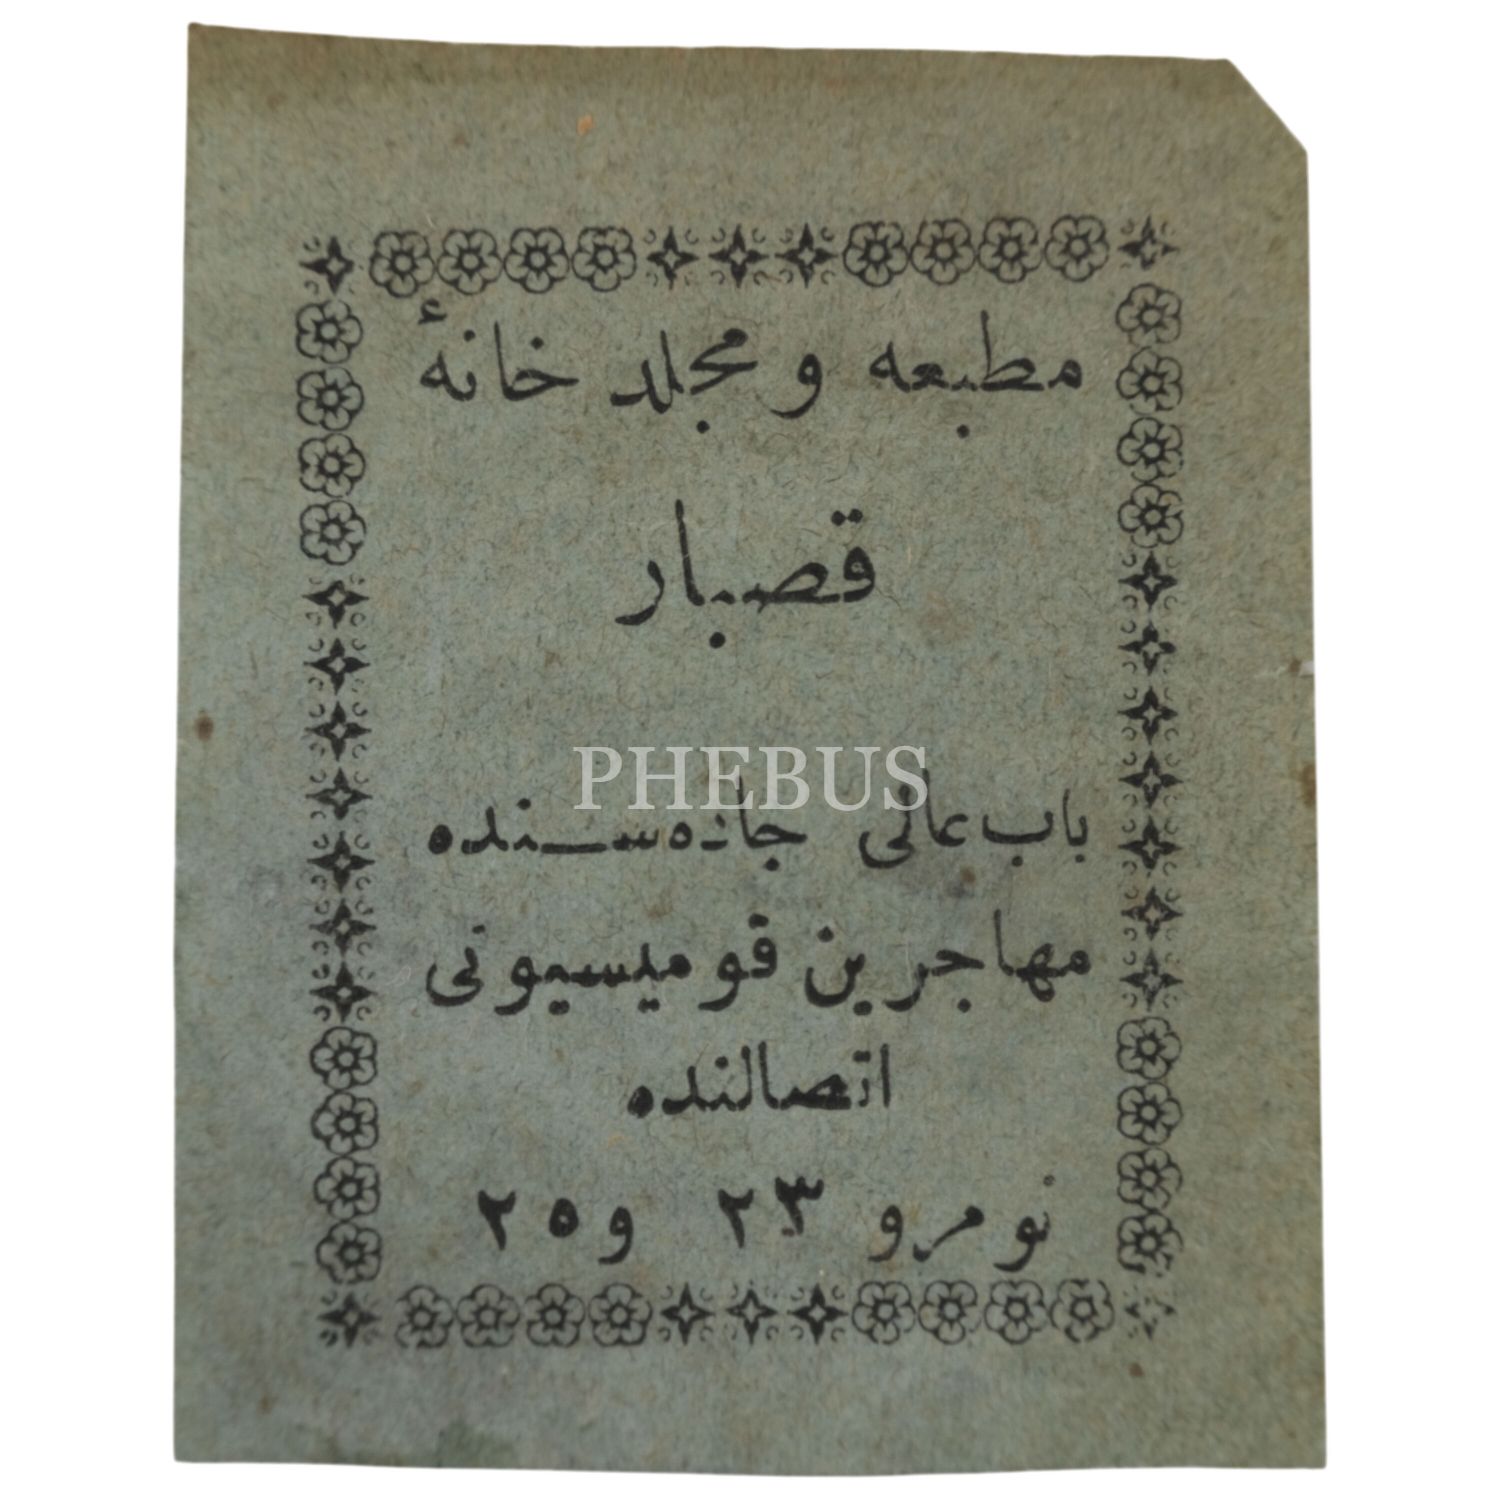 مطبعه و مجلد خانهٔ
قصبار
PHEBUS
باب عالی جاده‌سـنده
مهاجرین قومیسیونی
اتصالنده
نومرو ٢٣ و ٢٥